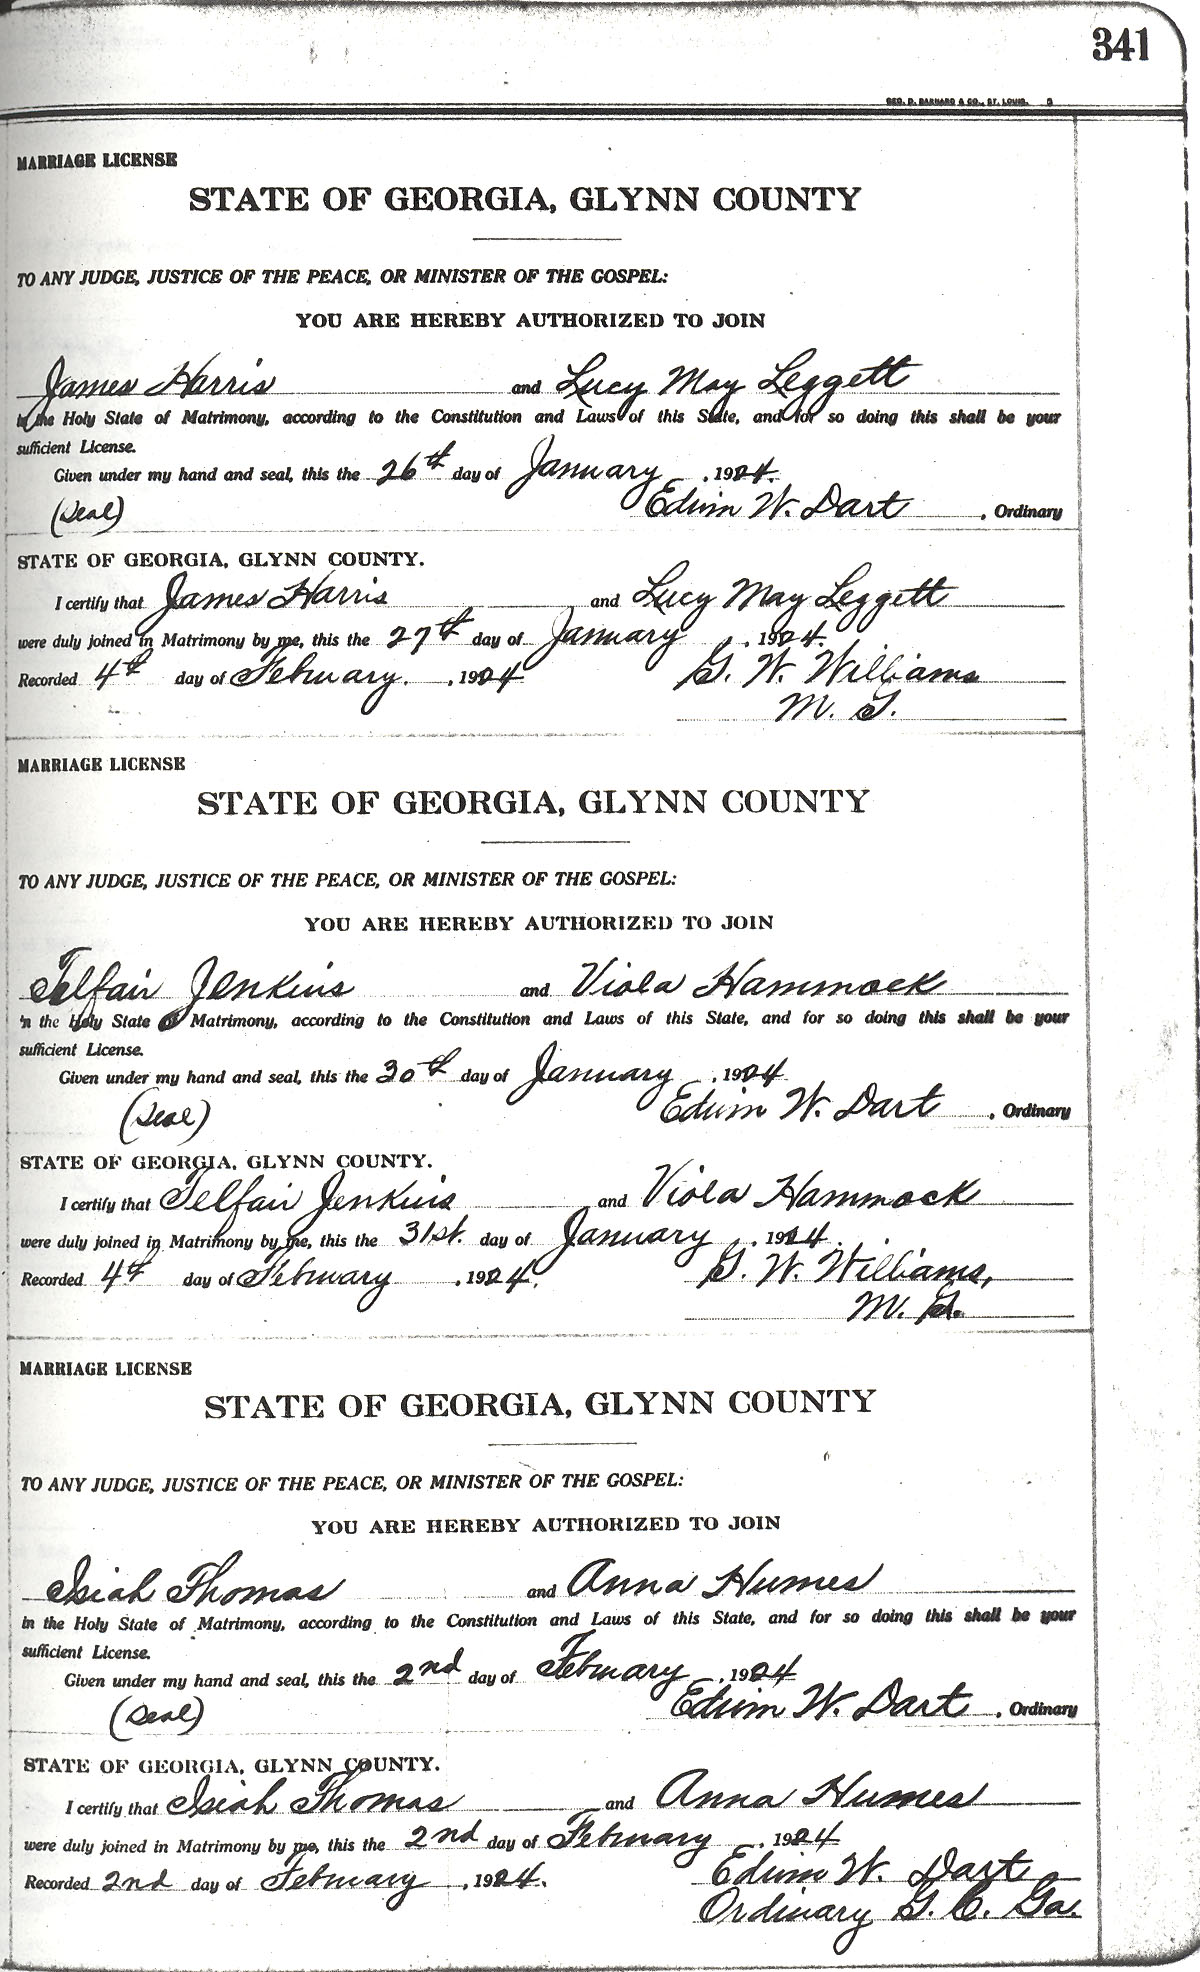 341
GEO. D. BARNARD & CO., ST. LOUIS.
MARRIAGE LICENSE
STATE OF GEORGIA, GLYNN COUNTY
TO ANY JUDGE, JUSTICE OF THE PEACE, OR MINISTER OF THE GOSPEL:
YOU ARE HEREBY AUTHORIZED TO JOIN
James Harris and Lucy May Leggett
in the Holy State of Matrimony, according to the Constitution and Laws of this State, and for so doing this shall be your
sufficient License.
Given under my hand and seal, this the 26th day of January , 1924.
(Seal) Edwin W. Dart , Ordinary
STATE OF GEORGIA, GLYNN COUNTY.
I certify that James Harris and Lucy May Leggett
were duly joined in Matrimony by me, this the 27th day of January , 1924.
Recorded 4th day of February. , 1924 G. W. Williams
M. G.
MARRIAGE LICENSE
STATE OF GEORGIA, GLYNN COUNTY
TO ANY JUDGE, JUSTICE OF THE PEACE, OR MINISTER OF THE GOSPEL:
YOU ARE HEREBY AUTHORIZED TO JOIN
Telfair Jenkins and Viola Hammock
in the Holy State of Matrimony, according to the Constitution and Laws of this State, and for so doing this shall be your
sufficient License.
Given under my hand and seal, this the 30th day of January , 1924
(Seal) Edwin W. Dart , Ordinary
STATE OF GEORGIA, GLYNN COUNTY.
I certify that Telfair Jenkins and Viola Hammock
were duly joined in Matrimony by me, this the 31st. day of January , 1924.
Recorded 4th day of February , 1924. G. W. Williams,
M. G.
MARRIAGE LICENSE
STATE OF GEORGIA, GLYNN COUNTY
TO ANY JUDGE, JUSTICE OF THE PEACE, OR MINISTER OF THE GOSPEL:
YOU ARE HEREBY AUTHORIZED TO JOIN
Isiah Thomas and Anna Humes
in the Holy State of Matrimony, according to the Constitution and Laws of this State, and for so doing this shall be your
sufficient License.
Given under my hand and seal, this the 2nd day of February , 1924
(Seal) Edwin W. Dart , Ordinary
STATE OF GEORGIA, GLYNN COUNTY.
I certify that Isiah Thomas and Anna Humes
were duly joined in Matrimony by me, this the 2nd day of February , 1924
Recorded 2nd day of February , 1924. Edwin W. Dart
Ordinary G. C. Ga.